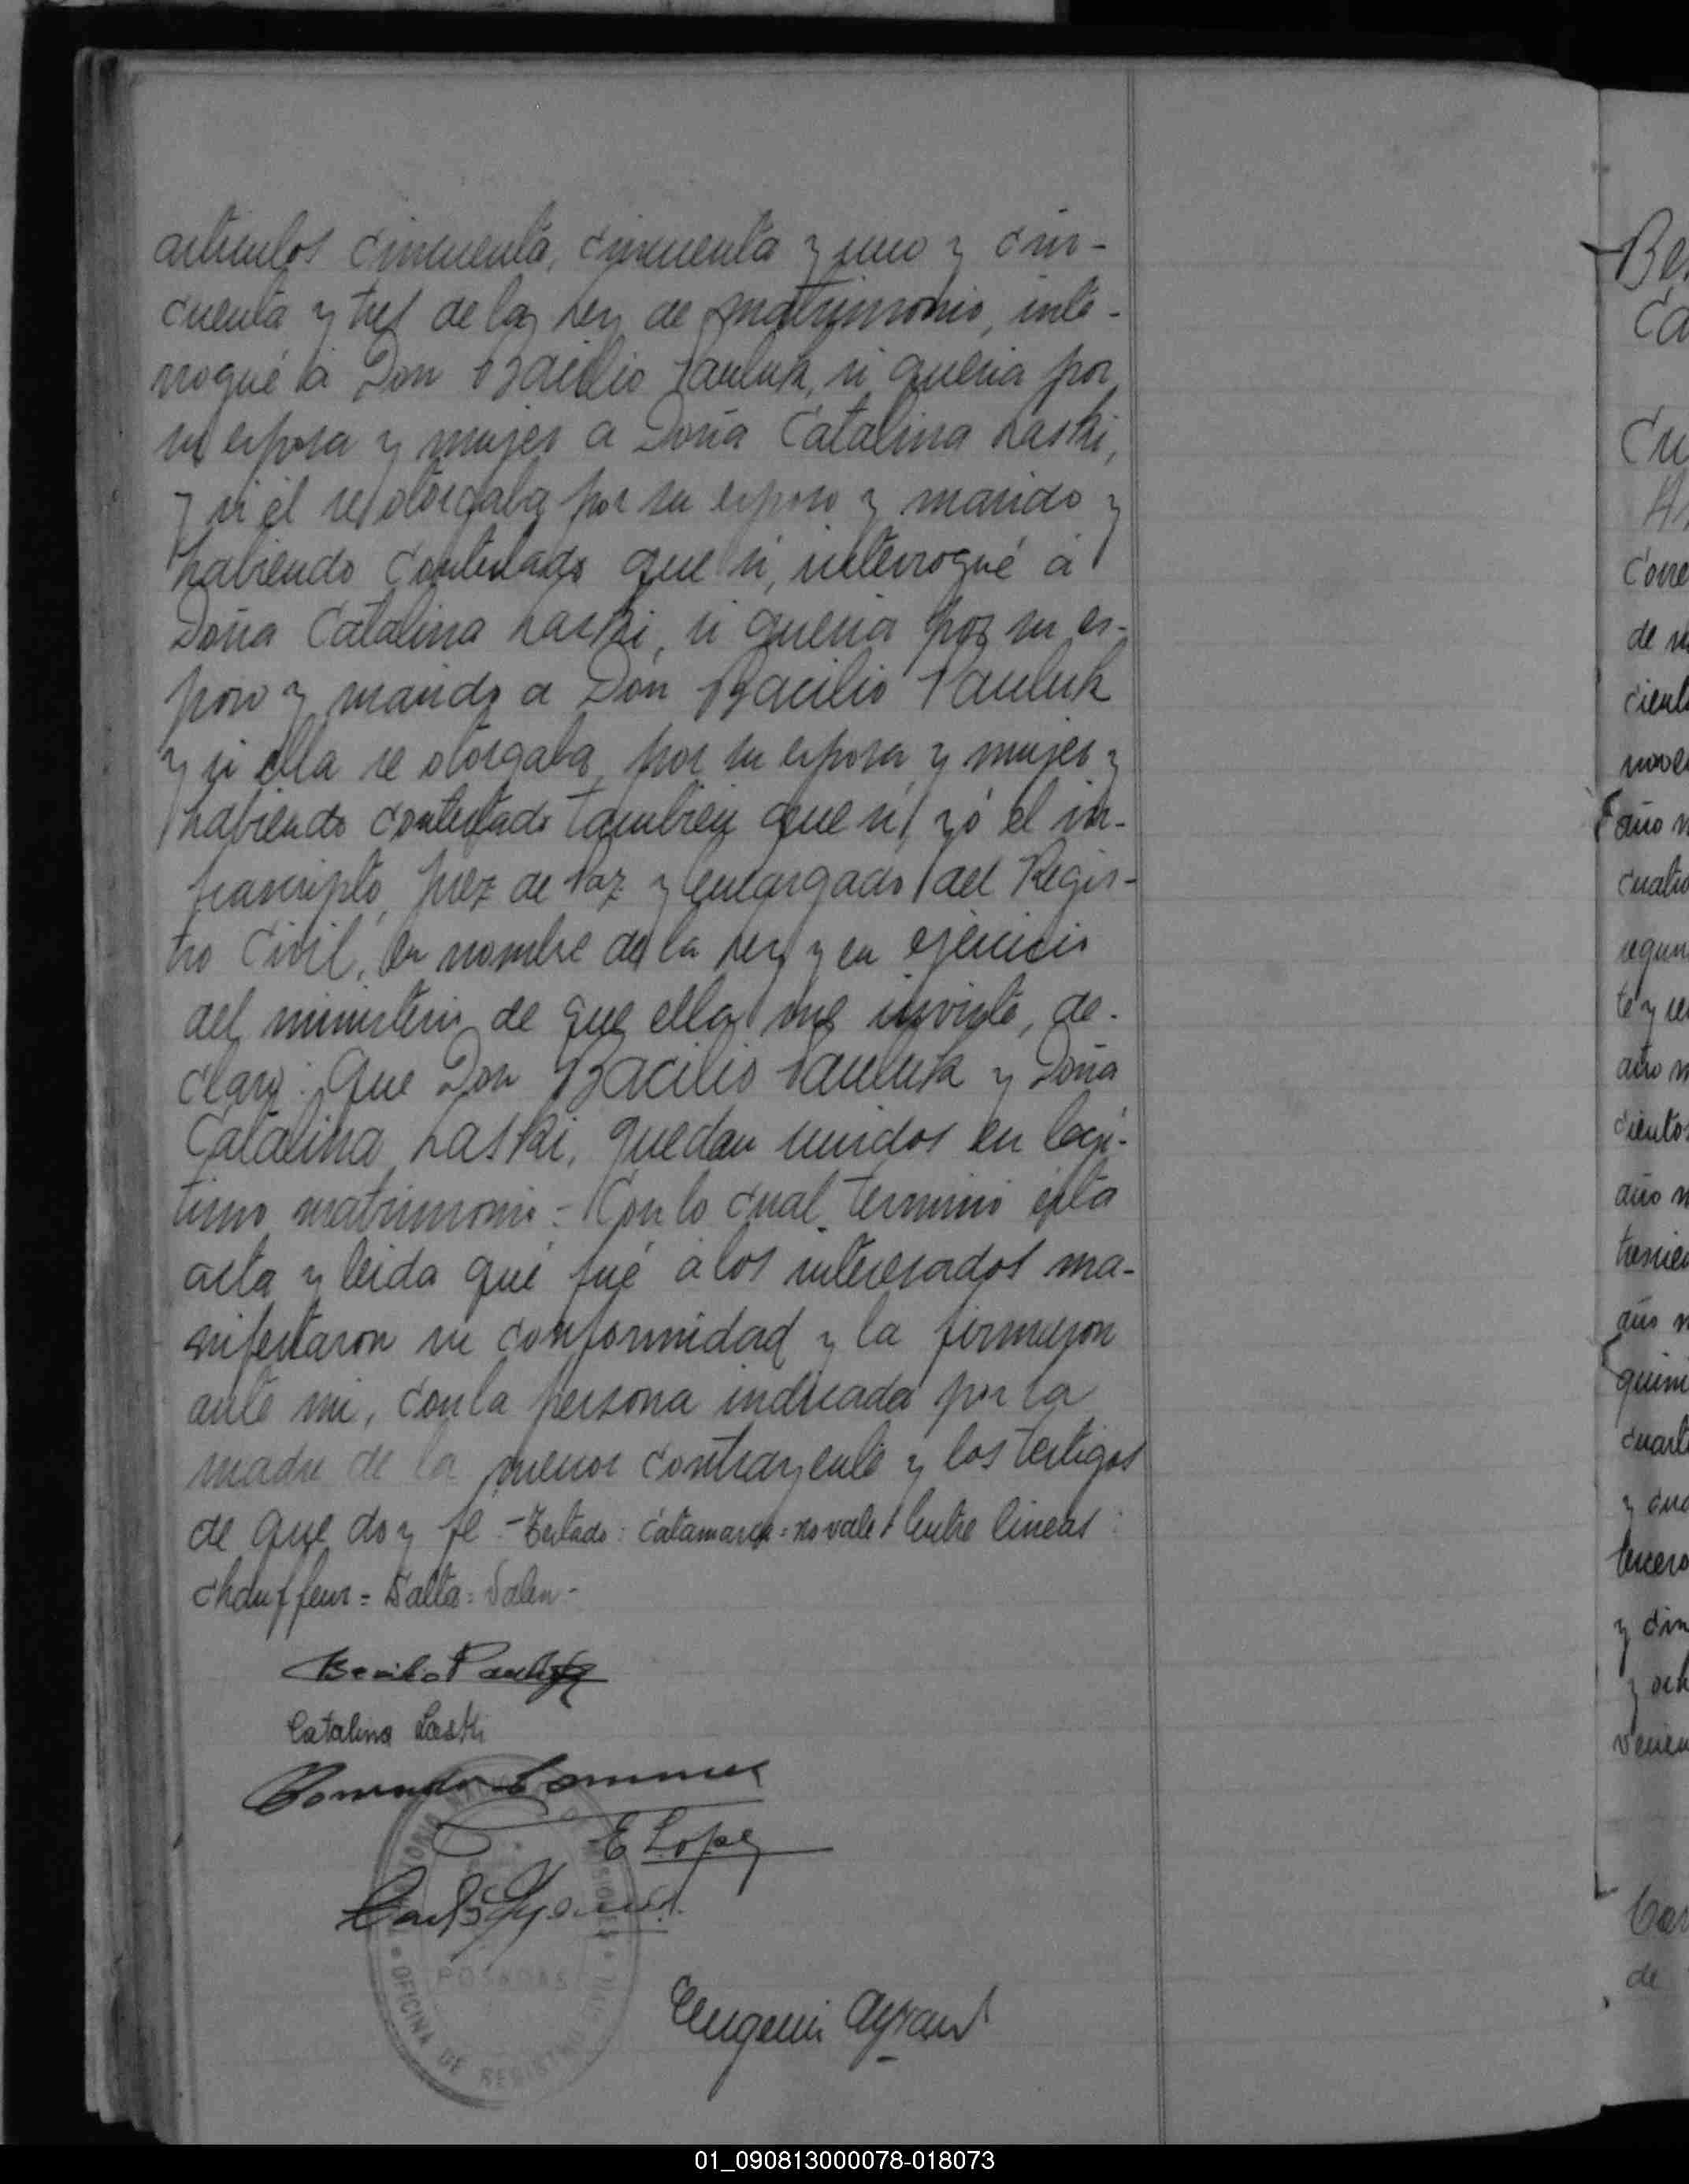 articulos cincuenta, cincuenta y uno y cin-
cuenta y tres de la Ley de matrimonio, inte-
rrogué á Don Bacilio Pauluk, si queria por
su esposa y mujer a Doña Catalina Laski,
y si él se otorgaba por su esposo y marido y
habiendo contestado que si, interrogué á
Doña Catalina Laski, si queria por su es-
poso y marido a Don Bacilio Pauluk
y si ella se otorgaba por su esposa y mujer y
habiendo contestado tambien que si, yó el in-
frascripto, Juez de Paz y encargado del Regis-
tro Civil, en nombre de la Ley y en ejercicio
del ministerio de que ella me inviste, de-
claro: Que Don Bacilio Pauluk y Doña
Catalina Laski, quedan unidos en legi-
timo matrimonio.- Con lo cual terminó esta
acta y leida que fué á los interesados ma-
nifestaron su conformidad y la firmaron
ante mi, con la persona indicada por la
madre de la menor contrayente y los testigos
de que doy fé.- Testado: Catamarca = no vale. Entre lineas:
chauffeur = Salta = Valen-
Catalina Laski
E Lopez
POSADAS
OFICINA DE REGISTRO
MISIONES
Eugenio
Be
Ca
Cu
Corre
de
cient
nove
año
cuatro
segun
te y
año
cientos
año
año
cuart
y
tercero
y cin
y
Car
de
01_090813000078-018073